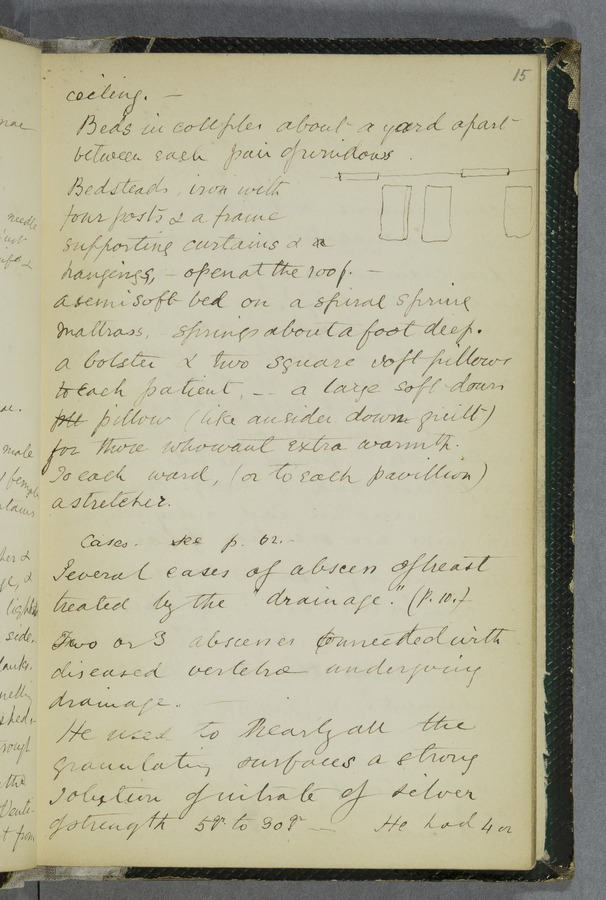 15
ceiling. —
Beds in couples about a yard apart
between each pair of windows.
Bedsteads, iron with
four posts & a frame
supporting curtains &
hangings, – open at the roof. –
a semi soft bed on a spiral spring
mattrass, springs about a foot deep.
a bolster & two square soft pillows
to each patient, — a large soft down
pillow (like an eider down quilt)
for those who want extra warmth.
To each ward, (or to each pavillion)
a stretcher.
Cases. see p.
Several cases of abscess of breast
treated by the "drainage." (p. 10.)
Two or 3 abscesses connected with
diseased vertebræ undergoing
drainage. —
He used to nearly all the
granulating surfaces a strong
solution of nitrate of silver
of strength 5gr to 30gr — He had 4 or